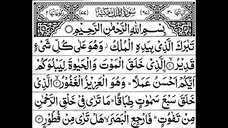 سُوْرَةُ الْمُلْكِ مَكِّيَّةٌ
بِسْمِ اللّٰهِ الرَّحْمٰنِ الرَّحِيْمِ
تَبٰرَكَ الَّذِيْ بِيَدِهِ الْمُلْكُ وَهُوَ عَلٰى كُلِّ شَيْءٍ
قَدِيْرُ الَّذِيْ خَلَقَ الْمَوْتَ وَالْحَيٰوةَ لِيَبْلُوَكُمْ
اَيُّكُمْ اَحْسَنُ عَمَلًا وَهُوَ الْعَزِيْزُ الْغَفُوْرُ الَّذِيْ
خَلَقَ سَبْعَ سَمٰوٰتٍ طِبَاقًا مَا تَرٰى فِيْ خَلْقِ الرَّحْمٰنِ
مِنْ تَفٰوُتٍ فَارْجِعِ الْبَصَرَ هَلْ تَرٰى مِنْ فُطُوْرٍ